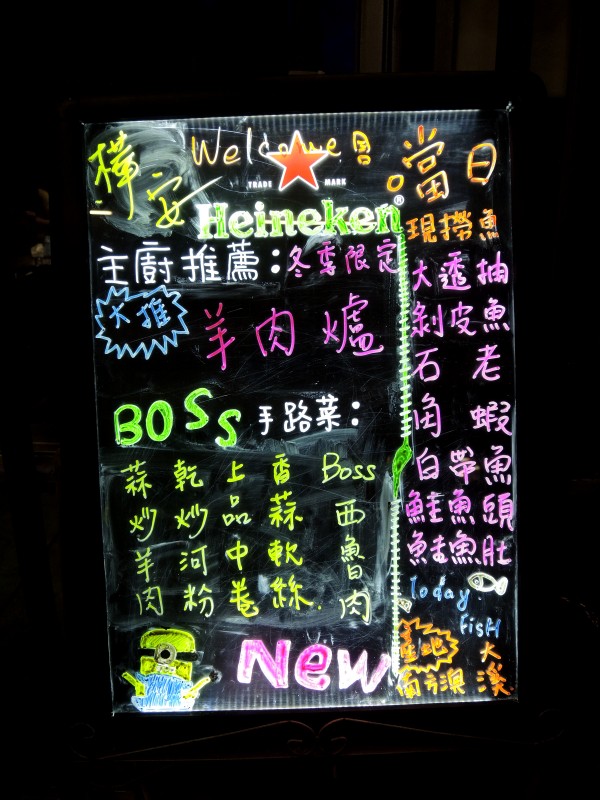 樺安
Welcome
TRADE MARK
Heineken®
主廚推薦：冬季限定
大推
羊肉爐
BOSS手路菜：
Boss西魯肉
香蒜軟絲
上品中卷
乾炒河粉
蒜炒羊肉
New
當日
現撈魚
大透抽
剝皮魚
石老
角蝦
白帶魚
鮭魚頭
鮭魚肚
Today
FisH
產地
大溪
南方澳